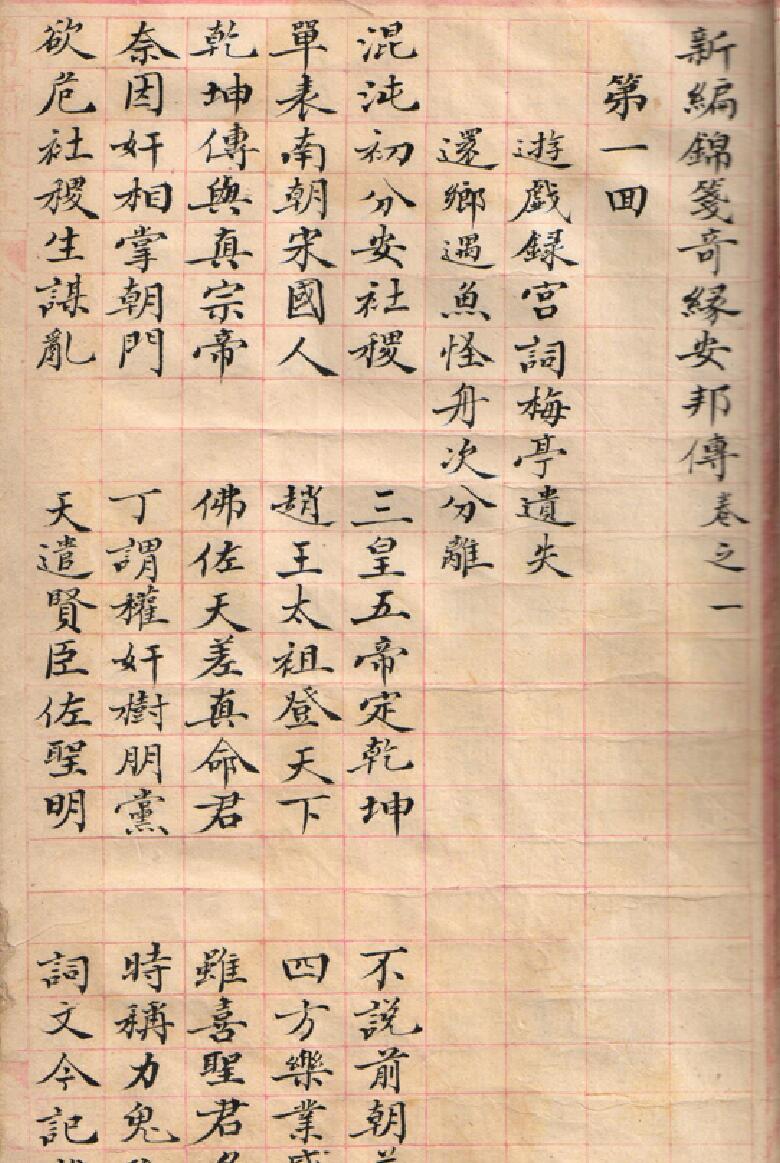 新編錦箋奇緣安邦傳卷之一
第一回
遊戲録宮詞梅亭遺失
還鄉遇魚怪舟次分離
混沌初分安社稷 三皇五帝定乾坤 不説前朝
單表南朝宋國人 趙王太祖登天下 四方樂業
乾坤傳與真宗帝 佛佐天差真命君 雖喜聖君
奈因奸相掌朝門 丁謂權奸樹朋黨 時稱力鬼
欲危社稷生謀亂 天遣賢臣佐聖明 詞文今記